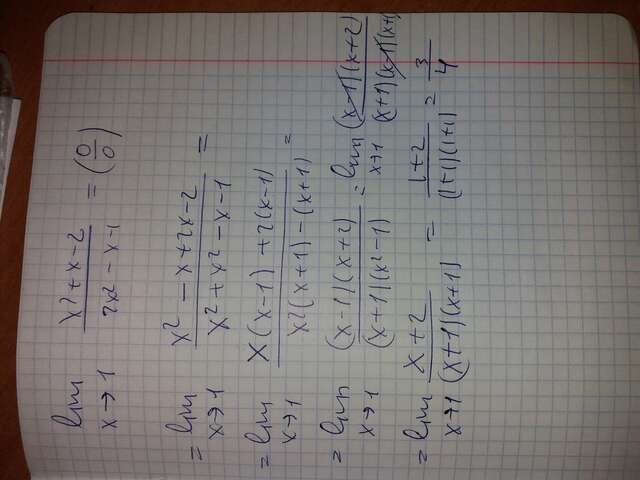 lim x→1 (x² + x - 2)/(2x² - x - 1) = (0/0)
= lim x→1 (x² - x + 2x - 2)/(x² + x² - x - 1) =
= lim x→1 (x(x-1) + 2(x-1))/(x²(x+1) - (x+1)) =
= lim x→1 ((x-1)(x+2))/((x+1)(x²-1)) = lim x→1 ((x-1)(x+2))/((x+1)(x-1)(x+1))
= lim x→1 (x+2)/((x+1)(x+1)) = (1+2)/((1+1)(1+1)) = 3/4